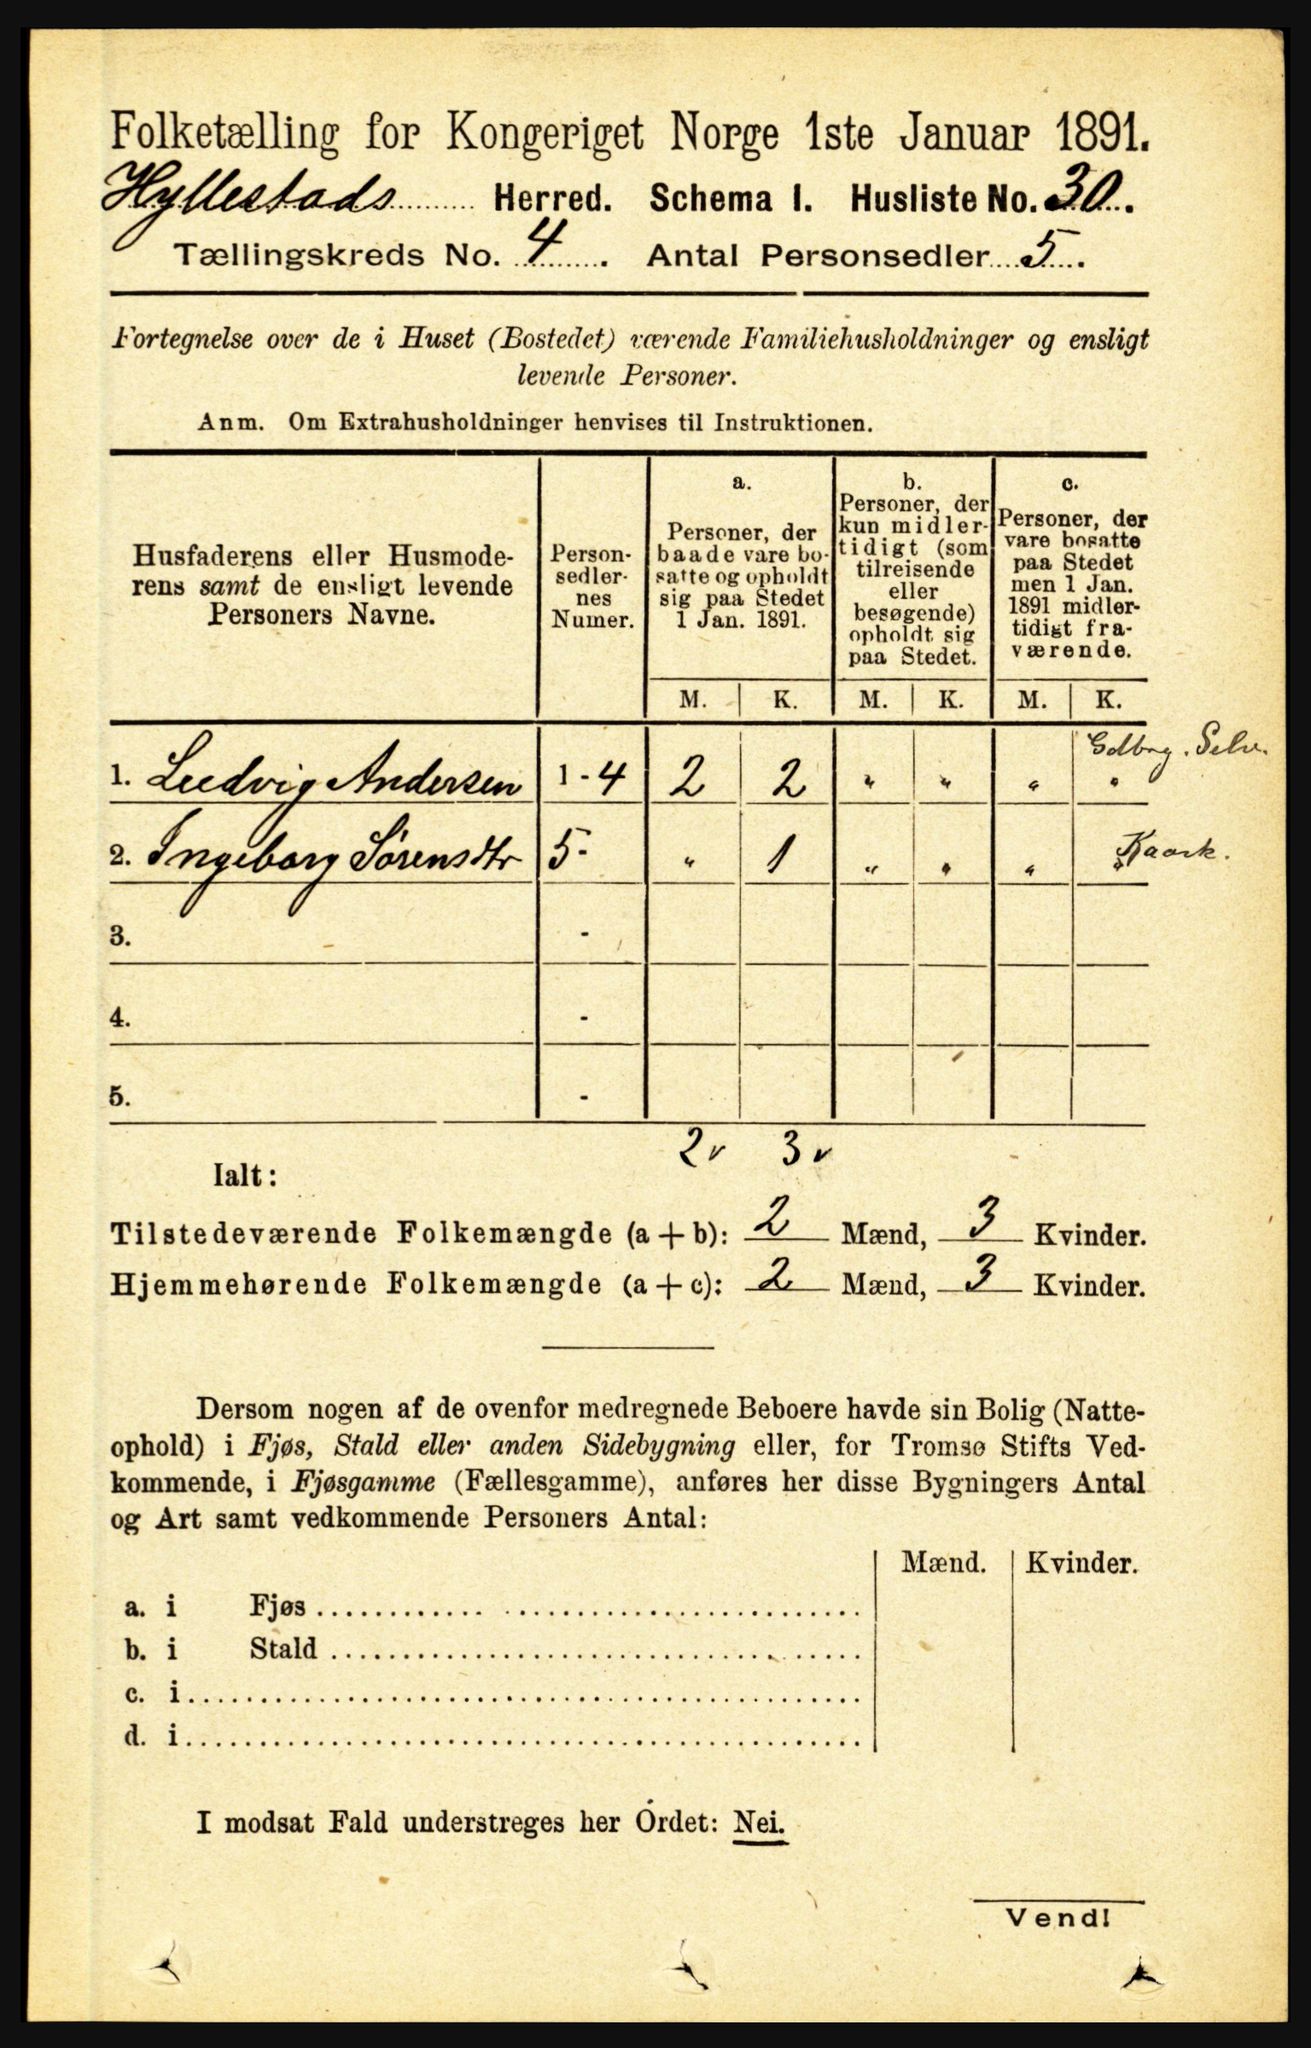 Folketælling for Kongeriget Norge 1ste Januar 1891.
Hyllestads Herred. Schema I. Husliste No. 30.
Tællingskreds No. 4. Antal Personsedler 5.
Fortegnelse over de i Huset (Bostedet) værende Familiehusholdninger og ensligt
levende Personer.
Anm. Om Extrahusholdninger henvises til Instruktionen.
Husfaderens eller Husmode-
rens samt de ensligt levende
Personers Navne.
Person-
sedler-
nes
Numer.
a.
Personer, der
baade vare bo-
satte og opholdt
sig paa Stedet
1 Jan. 1891.
b.
Personer, der
kun midler-
tidigt (som
tilreisende
eller
besøgende)
opholdt sig
paa Stedet.
c.
Personer, der
vare bosatte
paa Stedet
men 1 Jan.
1891 midler-
tidigt fra-
værende.
M. K. M. K. M. K.
1. Ludvig Andersen 1 - 4 2 2 " " " "
2. Ingeborg Sørensdtr 5 - " 1 " " " "
3. -
4. -
5. -
2 v 3 v
Ialt:
Tilstedeværende Folkemængde (a + b): 2 Mænd, 3 Kvinder.
Hjemmehørende Folkemængde (a + c): 2 Mænd, 3 Kvinder.
Dersom nogen af de ovenfor medregnede Beboere havde sin Bolig (Natte-
ophold) i Fjøs, Stald eller anden Sidebygning eller, for Tromsø Stifts Ved-
kommende, i Fjøsgamme (Fællesgamme), anføres her disse Bygningers Antal
og Art samt vedkommende Personers Antal:
Mænd. Kvinder.
a. i Fjøs
b. i Stald
c. i
d. i
I modsat Fald understreges her Ordet: Nei.
Vend!